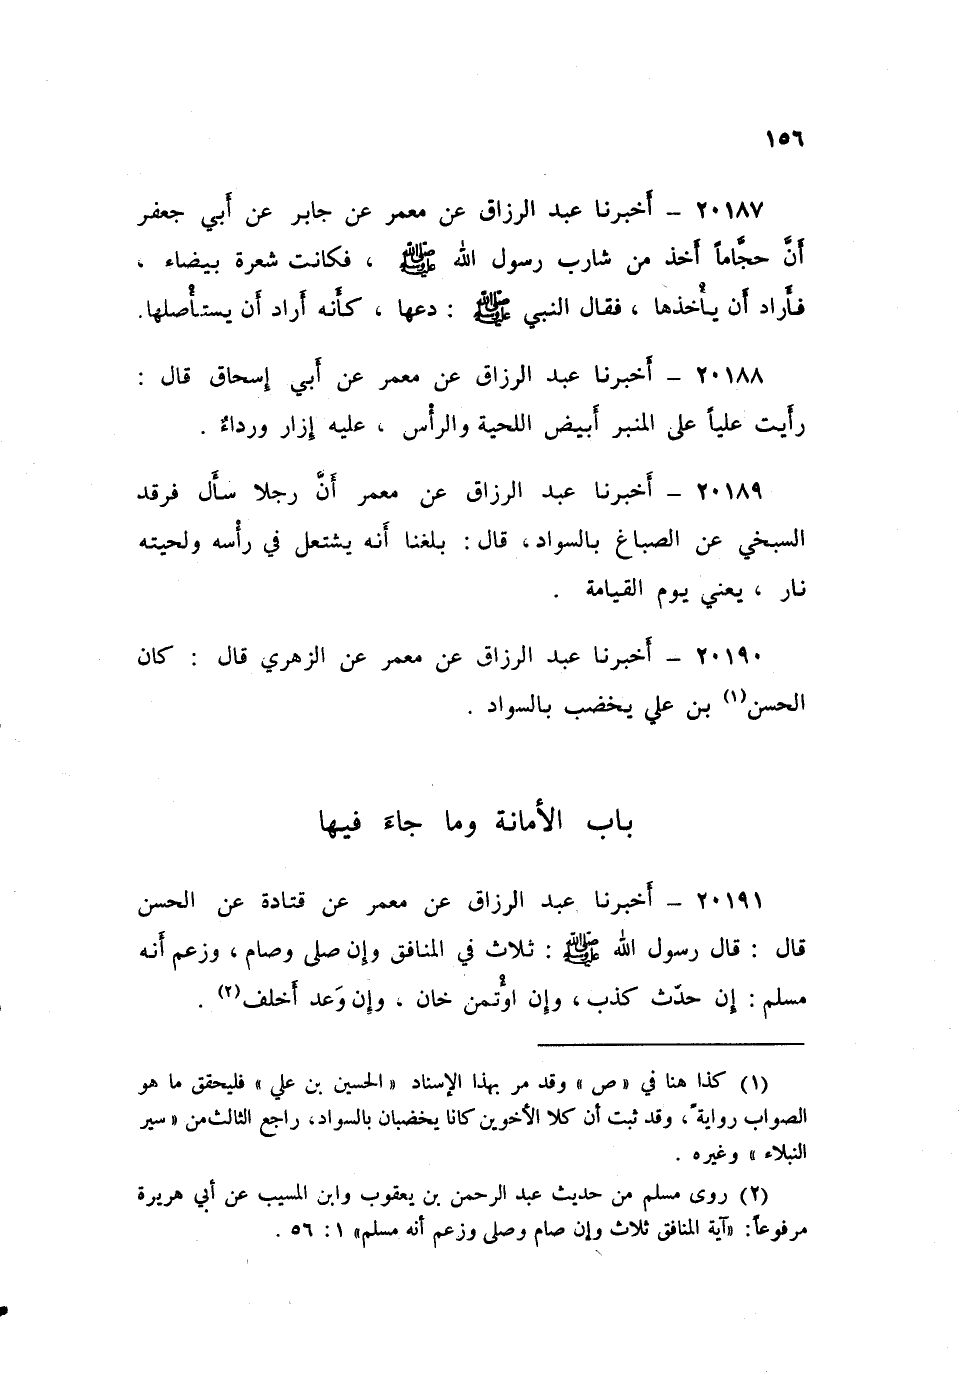 ١٥٦
٢٠١٨٧ – أَخبرنا عبد الرزاق عن معمر عن جابر عن أَبي جعفر
أَنَّ حجَّاماً أَخذ من شارب رسول الله ﷺ ، فكانت شعرة بيضاء ،
فأَراد أَن يأْخذها ، فقال النبي ﷺ : دعها ، كأَنه أَراد أَن يستأْصلها.
٢٠١٨٨ – أَخبرنا عبد الرزاق عن معمر عن أَبي إسحاق قال :
رأَيت علياً على المنبر أَبيض اللحية والرأْس ، عليه إزار ورداءٌ .
٢٠١٨٩ – أَخبرنا عبد الرزاق عن معمر أَنَّ رجلا سأَل فرقد
السبخي عن الصباغ بالسواد، قال : بلغنا أَنه يشتعل في رأْسه ولحيته
نار ، يعني يوم القيامة .
٢٠١٩٠ – أَخبرنا عبد الرزاق عن معمر عن الزهري قال : كان
الحسن(١) بن علي يخضب بالسواد .
باب الأَمانة وما جاءَ فيها
٢٠١٩١ – أَخبرنا عبد الرزاق عن معمر عن قتادة عن الحسن
قال : قال رسول الله ﷺ : ثلاث في المنافق وإن صلى وصام ، وزعم أَنه
مسلم : إن حدّث كذب ، وإن اوْتمن خان ، وإن وَعد أَخلف(٢) .
(١) كذا هنا في «ص» وقد مر بهذا الإسناد «الحسين بن علي» فليحقق ما هو
الصواب روايةً، وقد ثبت أن كلا الأخوين كانا يخضبان بالسواد، راجع الثالث من «سير
النبلاء» وغيره .
(٢) روى مسلم من حديث عبد الرحمن بن يعقوب وابن المسيب عن أبي هريرة
مرفوعاً: «آية المنافق ثلاث وإن صام وصلى وزعم أنه مسلم» ١ : ٥٦ .